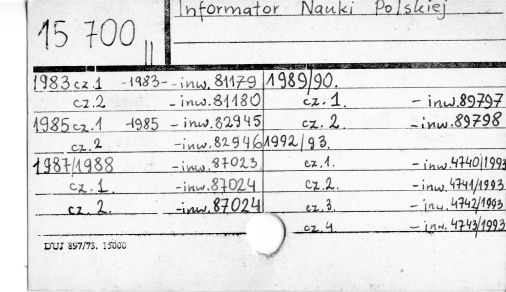 Informator Nauki Polskiej
15 700 II
1983 cz.1 -1983- -inw.81179
cz.2 -inw.81180
1985 cz.1 -1985 -inw.82945
cz.2 -inw.82946
1987/1988 -inw.87023
cz.1. -inw.87024
cz.2. -inw.87024
1989/90.
cz.1. -inw.89797
cz.2. -inw.89798
1992/93.
cz.1. -inw.4740/1993
cz.2. -inw.4741/1993
cz.3. -inw.4742/1993
cz.4 -inw.4743/1993
DUJ 897/73. 15000